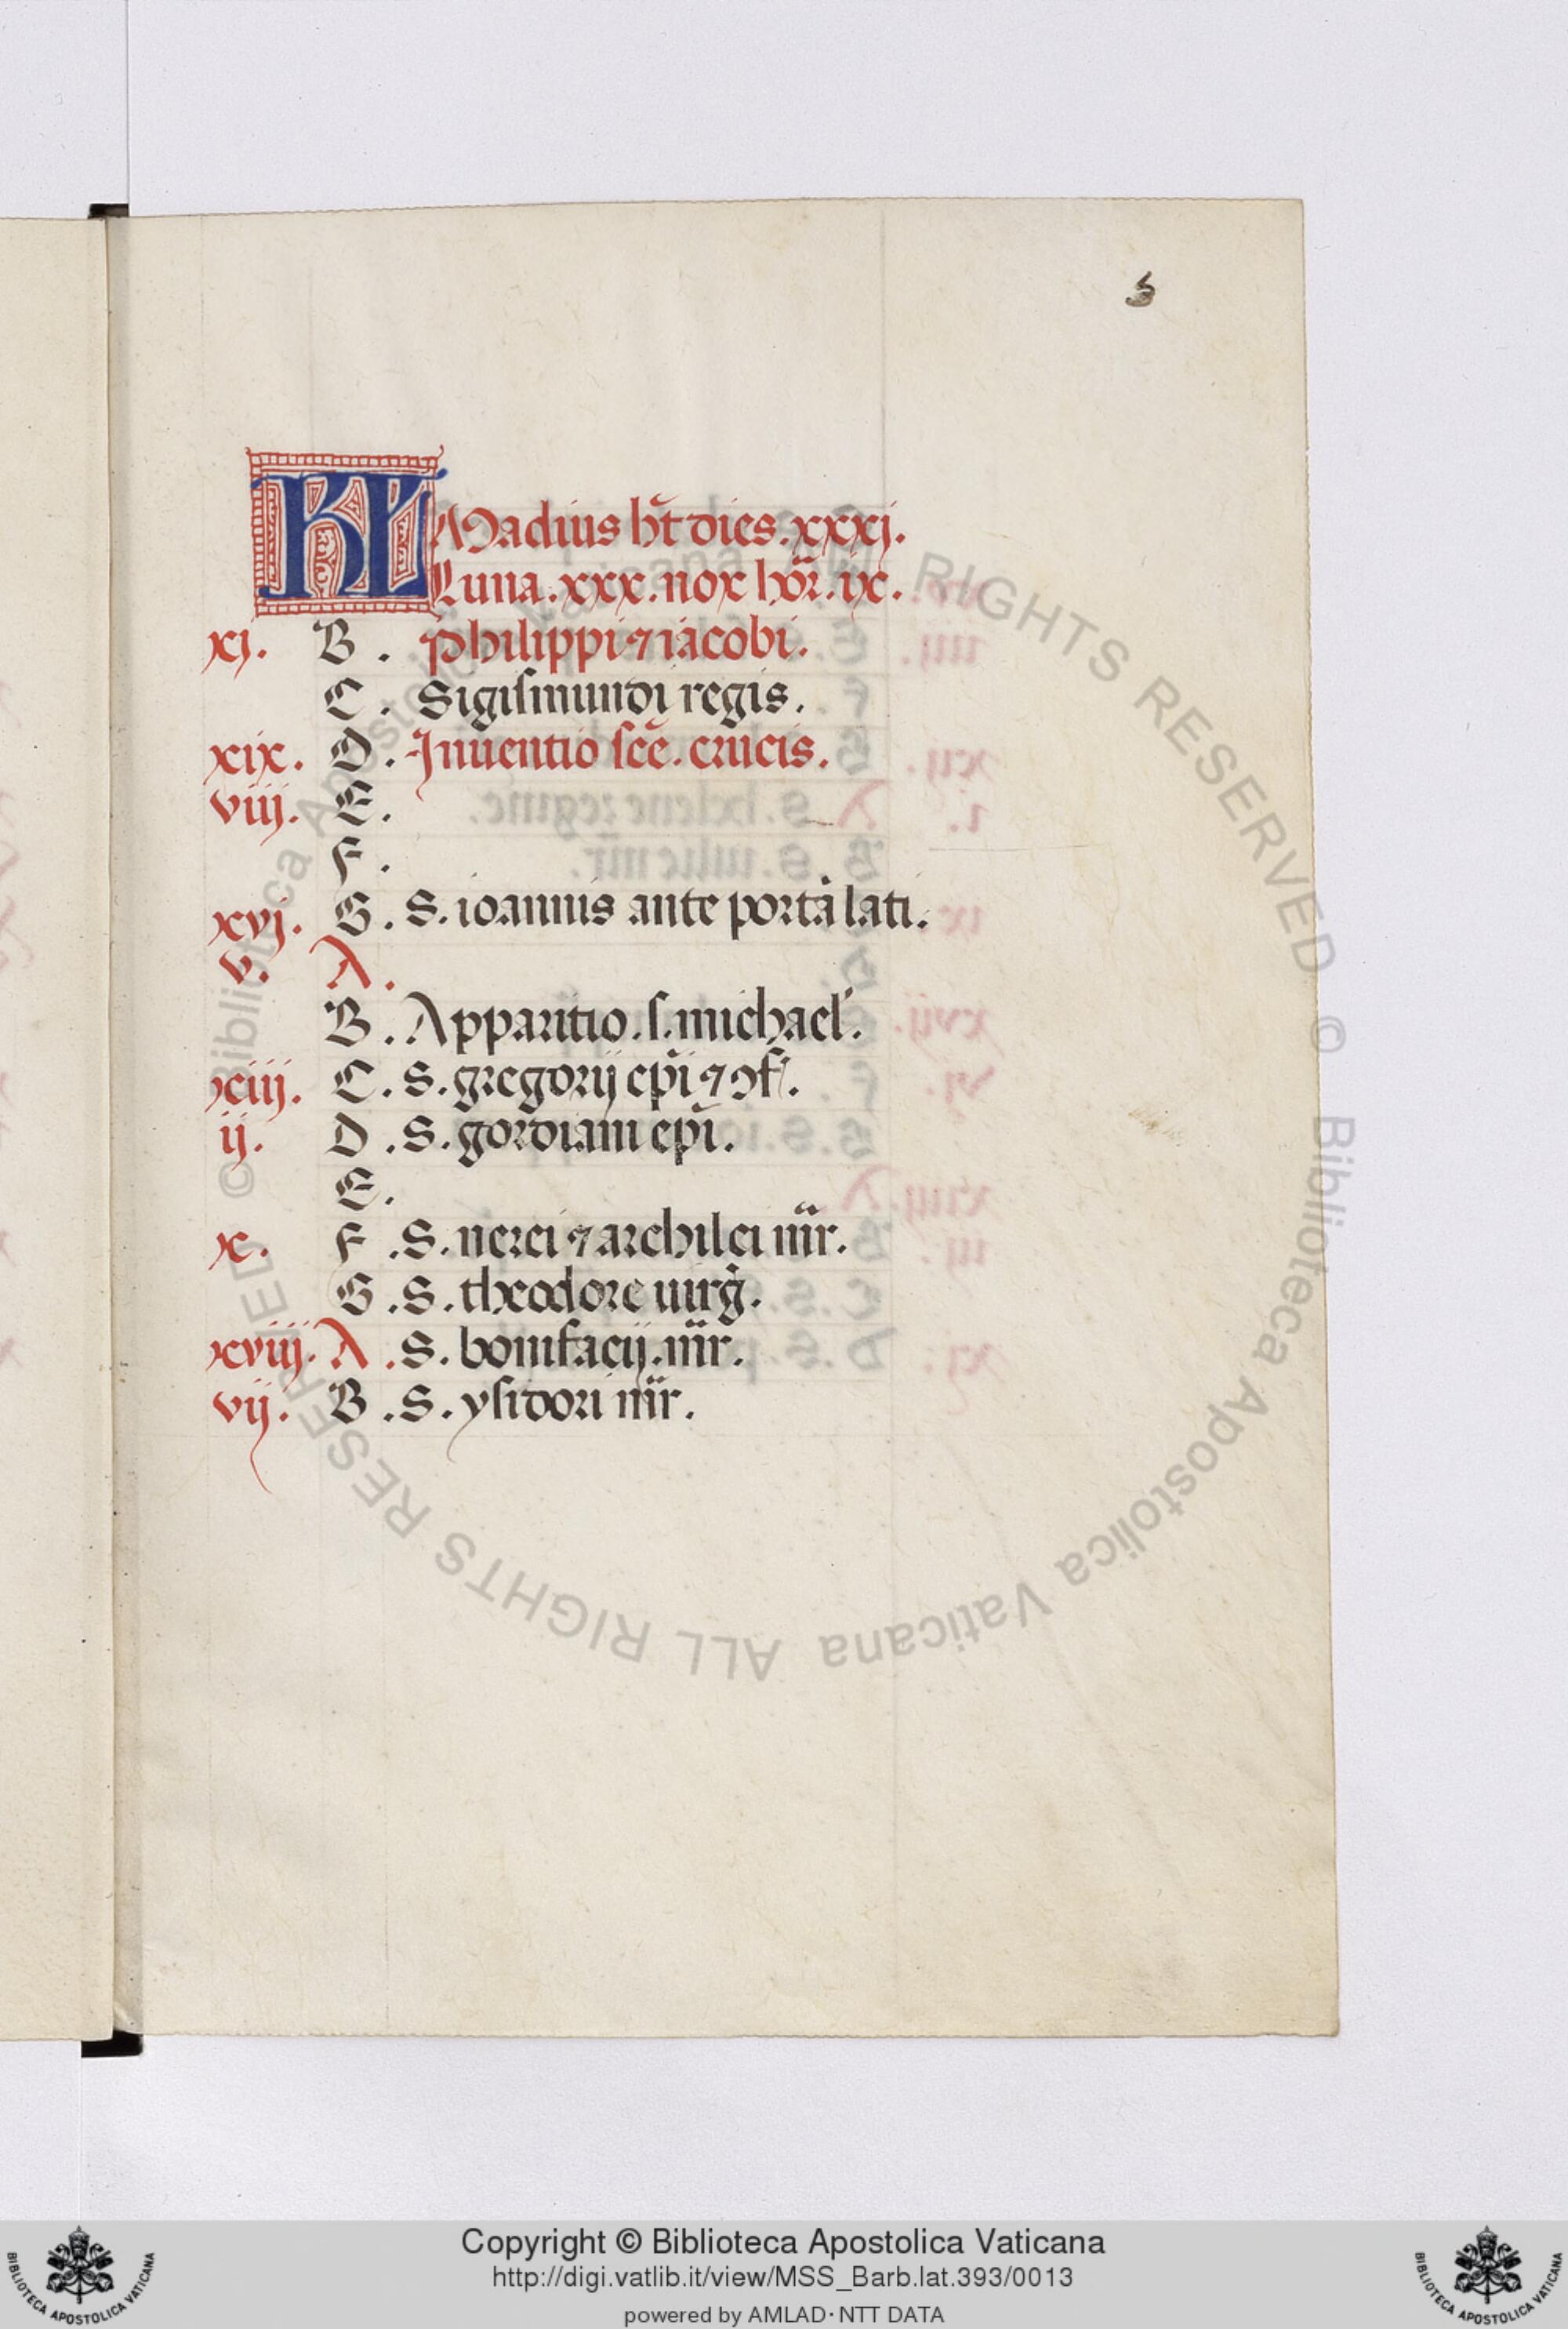 3
KL Madius ht̄ dies. xxxj.
Luna. xxx. nox hor̄. ix.
xj. B. Philippi ⁊ iacobi.
C. Sigiſmundi regis.
xix. D. Inuentio ſcē. crucis.
viij. E.
F.
xvj. G. S. ioannis ante portā lati.
v. A.
B. Apparitio. ſ. michael'.
xiij. C. S. gregorij epī ⁊ ↄf.
ij. D. S. gordiani epī.
E.
x. F. S. nerei ⁊ archilei mr̄.
G. S. theodore uirḡ.
xviij. A. S. bonifacij. mr̄.
vij. B. S. yſidori mr̄.
© Biblioteca Apostolica Vaticana ALL RIGHTS RESERVED © Biblioteca Apostolica Vaticana ALL RIGHTS RESERVED
Copyright © Biblioteca Apostolica Vaticana
http://digi.vatlib.it/view/MSS_Barb.lat.393/0013
powered by AMLAD·NTT DATA
BIBLIOTECA APOSTOLICA VATICANA
BIBLIOTECA APOSTOLICA VATICANA